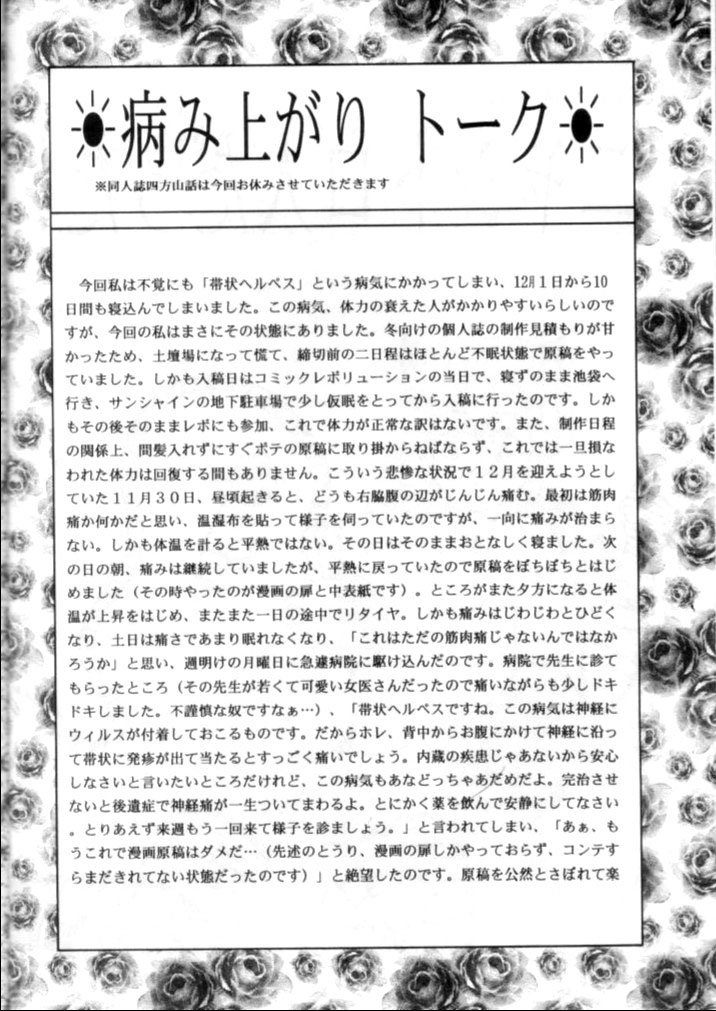 病み上がり トーク
※同人誌四方山話は今回お休みさせていただきます
今回私は不覚にも「帯状ヘルペス」という病気にかかってしまい、12月1日から10
日間も寝込んでしまいました。この病気、体力の衰えた人がかかりやすいらしいので
すが、今回の私はまさにその状態にありました。冬向けの個人誌の制作見積もりが甘
かったため、土壇場になって慌て、締切前の二日程はほとんど不眠状態で原稿をやっ
ていました。しかも入稿日はコミックレボリューションの当日で、寝ずのまま池袋へ
行き、サンシャインの地下駐車場で少し仮眠をとってから入稿に行ったのです。しか
もその後そのままレボにも参加、これで体力が正常な訳はないです。また、制作日程
の関係上、間髪入れずにすぐポテの原稿に取り掛からねばならず、これでは一旦損な
われた体力は回復する間もありません。こういう悲惨な状況で12月を迎えようとし
ていた11月30日、昼頃起きると、どうも右脇腹の辺がじんじん痛む。最初は筋肉
痛か何かだと思い、温湿布を貼って様子を伺っていたのですが、一向に痛みが治まら
ない。しかも体温を計ると平熱ではない。その日はそのままおとなしく寝ました。次
の日の朝、痛みは継続していましたが、平熱に戻っていたので原稿をぼちぼちとはじ
めました(その時やったのが漫画の扉と中表紙です)。ところがまた夕方になると体
温が上昇をはじめ、またまた一日の途中でリタイヤ。しかも痛みはじわじわとひどく
なり、土日は痛さであまり眠れなくなり、「これはただの筋肉痛じゃないんではなか
ろうか」と思い、週明けの月曜日に急遽病院に駆け込んだのです。病院で先生に診て
もらったところ(その先生が若くて可愛い女医さんだったので痛いながらも少しドキ
ドキしました。不謹慎な奴ですなぁ…)、「帯状ヘルペスですね。この病気は神経に
ウィルスが付着しておこるものです。だからホレ、背中からお腹にかけて神経に沿っ
て帯状に発疹が出て当たるとすっごく痛いでしょう。内蔵の疾患じゃあないから安心
しなさいと言いたいところだけれど、この病気もあなどっちゃあだめだよ。完治させ
ないと後遺症で神経痛が一生ついてまわるよ。とにかく薬を飲んで安静にしてなさい
。とりあえず来週もう一回来て様子を診ましょう。」と言われてしまい、「あぁ、も
うこれで漫画原稿はダメだ…(先述のとうり、漫画の扉しかやっておらず、コンテす
らまだきれてない状態だったのです)」と絶望したのです。原稿を公然とさぼれて楽